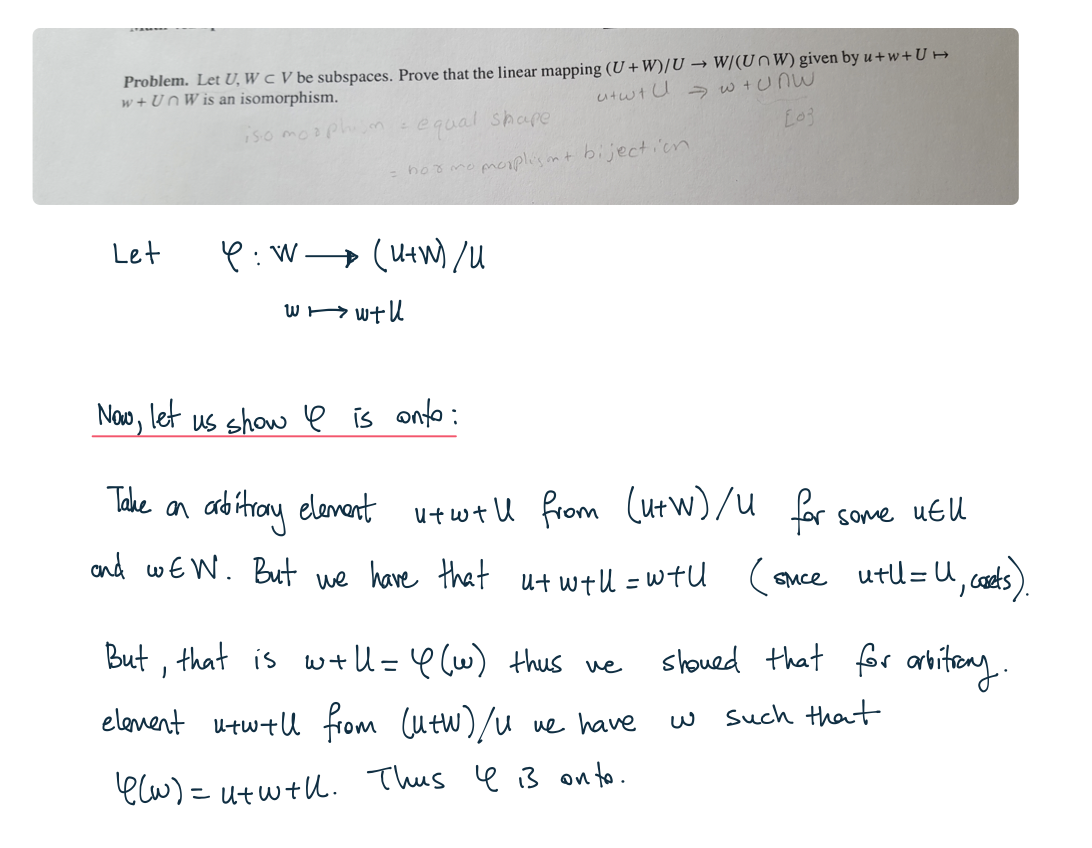 Problem. Let U, W ⊂ V be subspaces. Prove that the linear mapping (U + W)/U → W/(U ∩ W) given by u + w + U ↦
w + U ∩ W is an isomorphism.
u+w+U → w+U∩W
isomorphism = equal shape
{0}
= homomorphism + bijection
Let φ : W → (U+W)/U
w ↦ w+U
Now, let us show φ is onto:
Take an arbitrary element u+w+U from (U+W)/U for some u∈U
and w∈W. But we have that u+w+U = w+U (since u+U=U, cosets).
But, that is w+U = φ(w) thus we showed that for arbitrary.
element u+w+U from (U+W)/U we have w such that
φ(w) = u+w+U. Thus φ is onto.